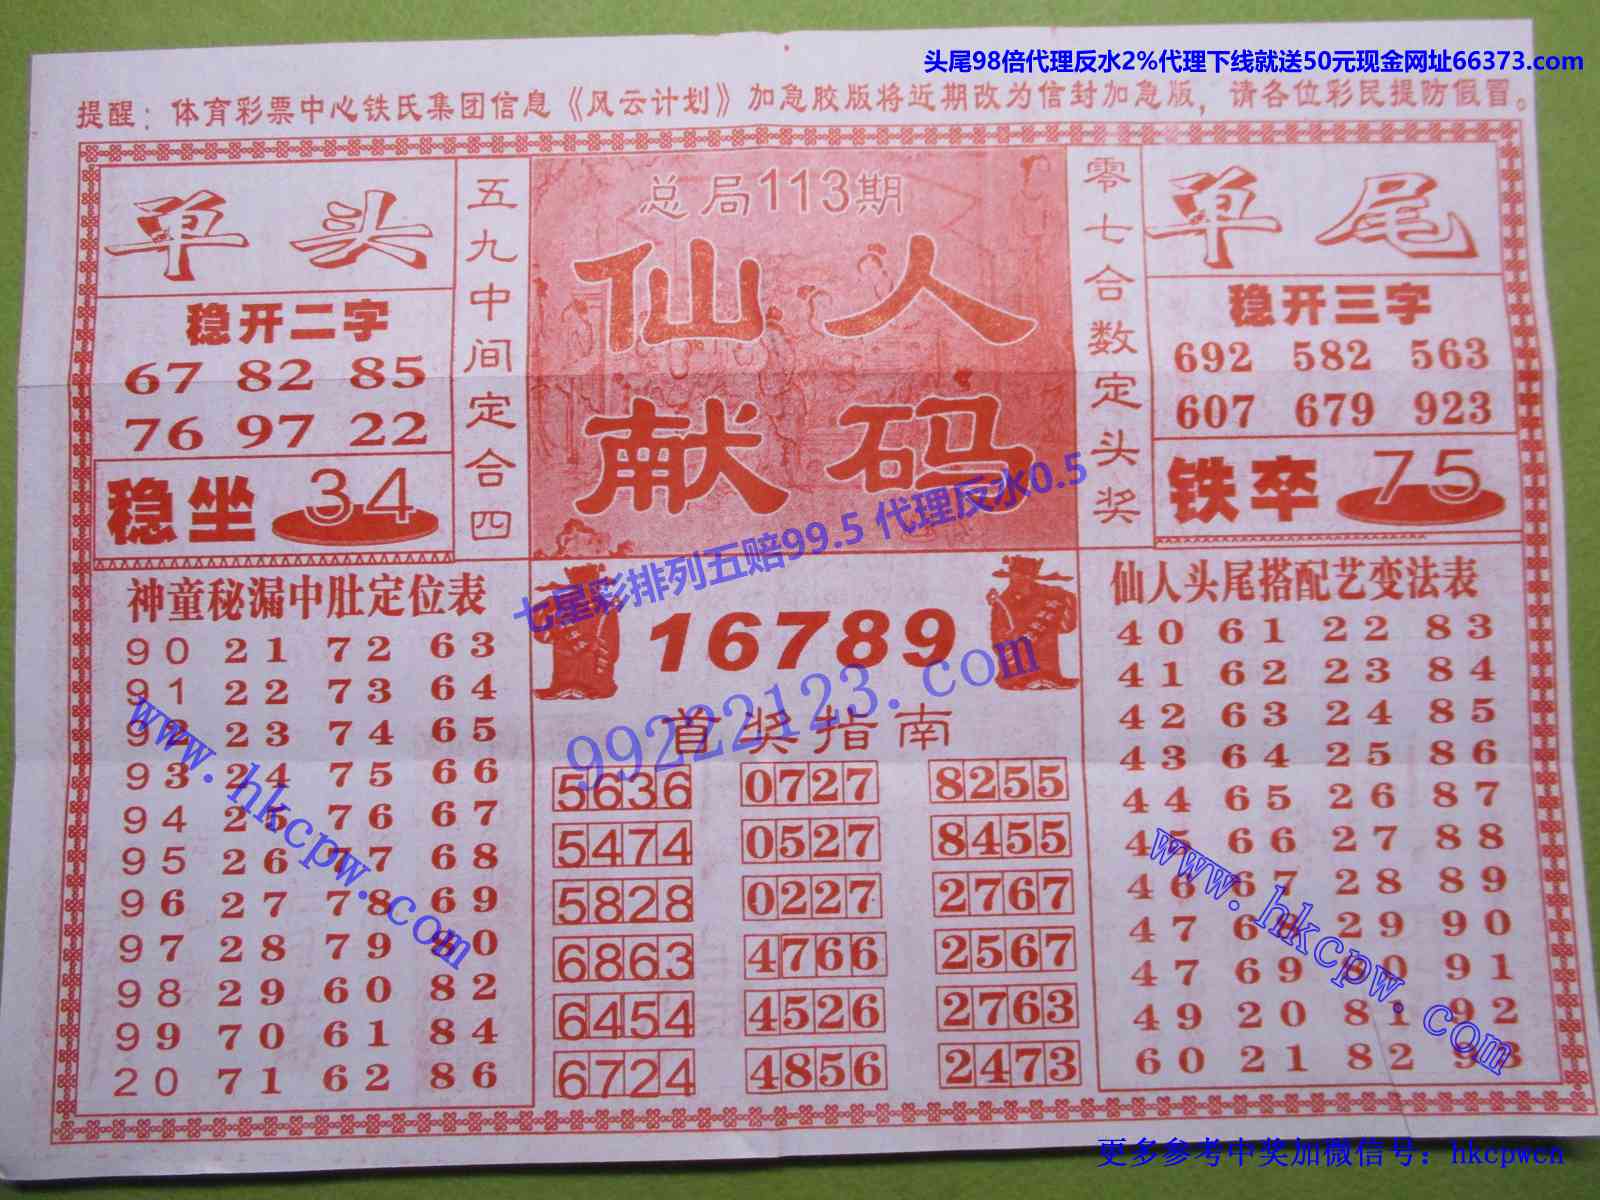 头尾98倍代理反水2%代理下线就送50元现金网址66373.com
提醒：体育彩票中心铁氏集团信息《风云计划》加急胶版将近期改为信封加急版，请各位彩民提防假冒。
单头
稳开二字
67 82 85
76 97 22
稳坐 34
五九中间定合四
总局113期
仙人
献码
零七合数定头奖
单尾
稳开三字
692 582 563
607 679 923
铁卒 75
七星彩排列五赔99.5 代理反水0.5
99222123.com
神童秘漏中肚定位表
90 21 72 63
91 22 73 64
92 23 74 65
93 24 75 66
94 25 76 67
95 26 77 68
96 27 78 69
97 28 79 80
98 29 60 82
99 70 61 84
20 71 62 86
www.hkcpw.com
16789
首奖指南
5636 0727 8255
5474 0527 8455
5828 0227 2767
6863 4766 2567
6454 4526 2763
6724 4856 2473
仙人头尾搭配艺变法表
40 61 22 83
41 62 23 84
42 63 24 85
43 64 25 86
44 65 26 87
45 66 27 88
46 67 28 89
47 68 29 90
47 69 80 91
49 20 81 92
60 21 82 93
www.hkcpw.com
更多参考中奖加微信号：hkcpwcn